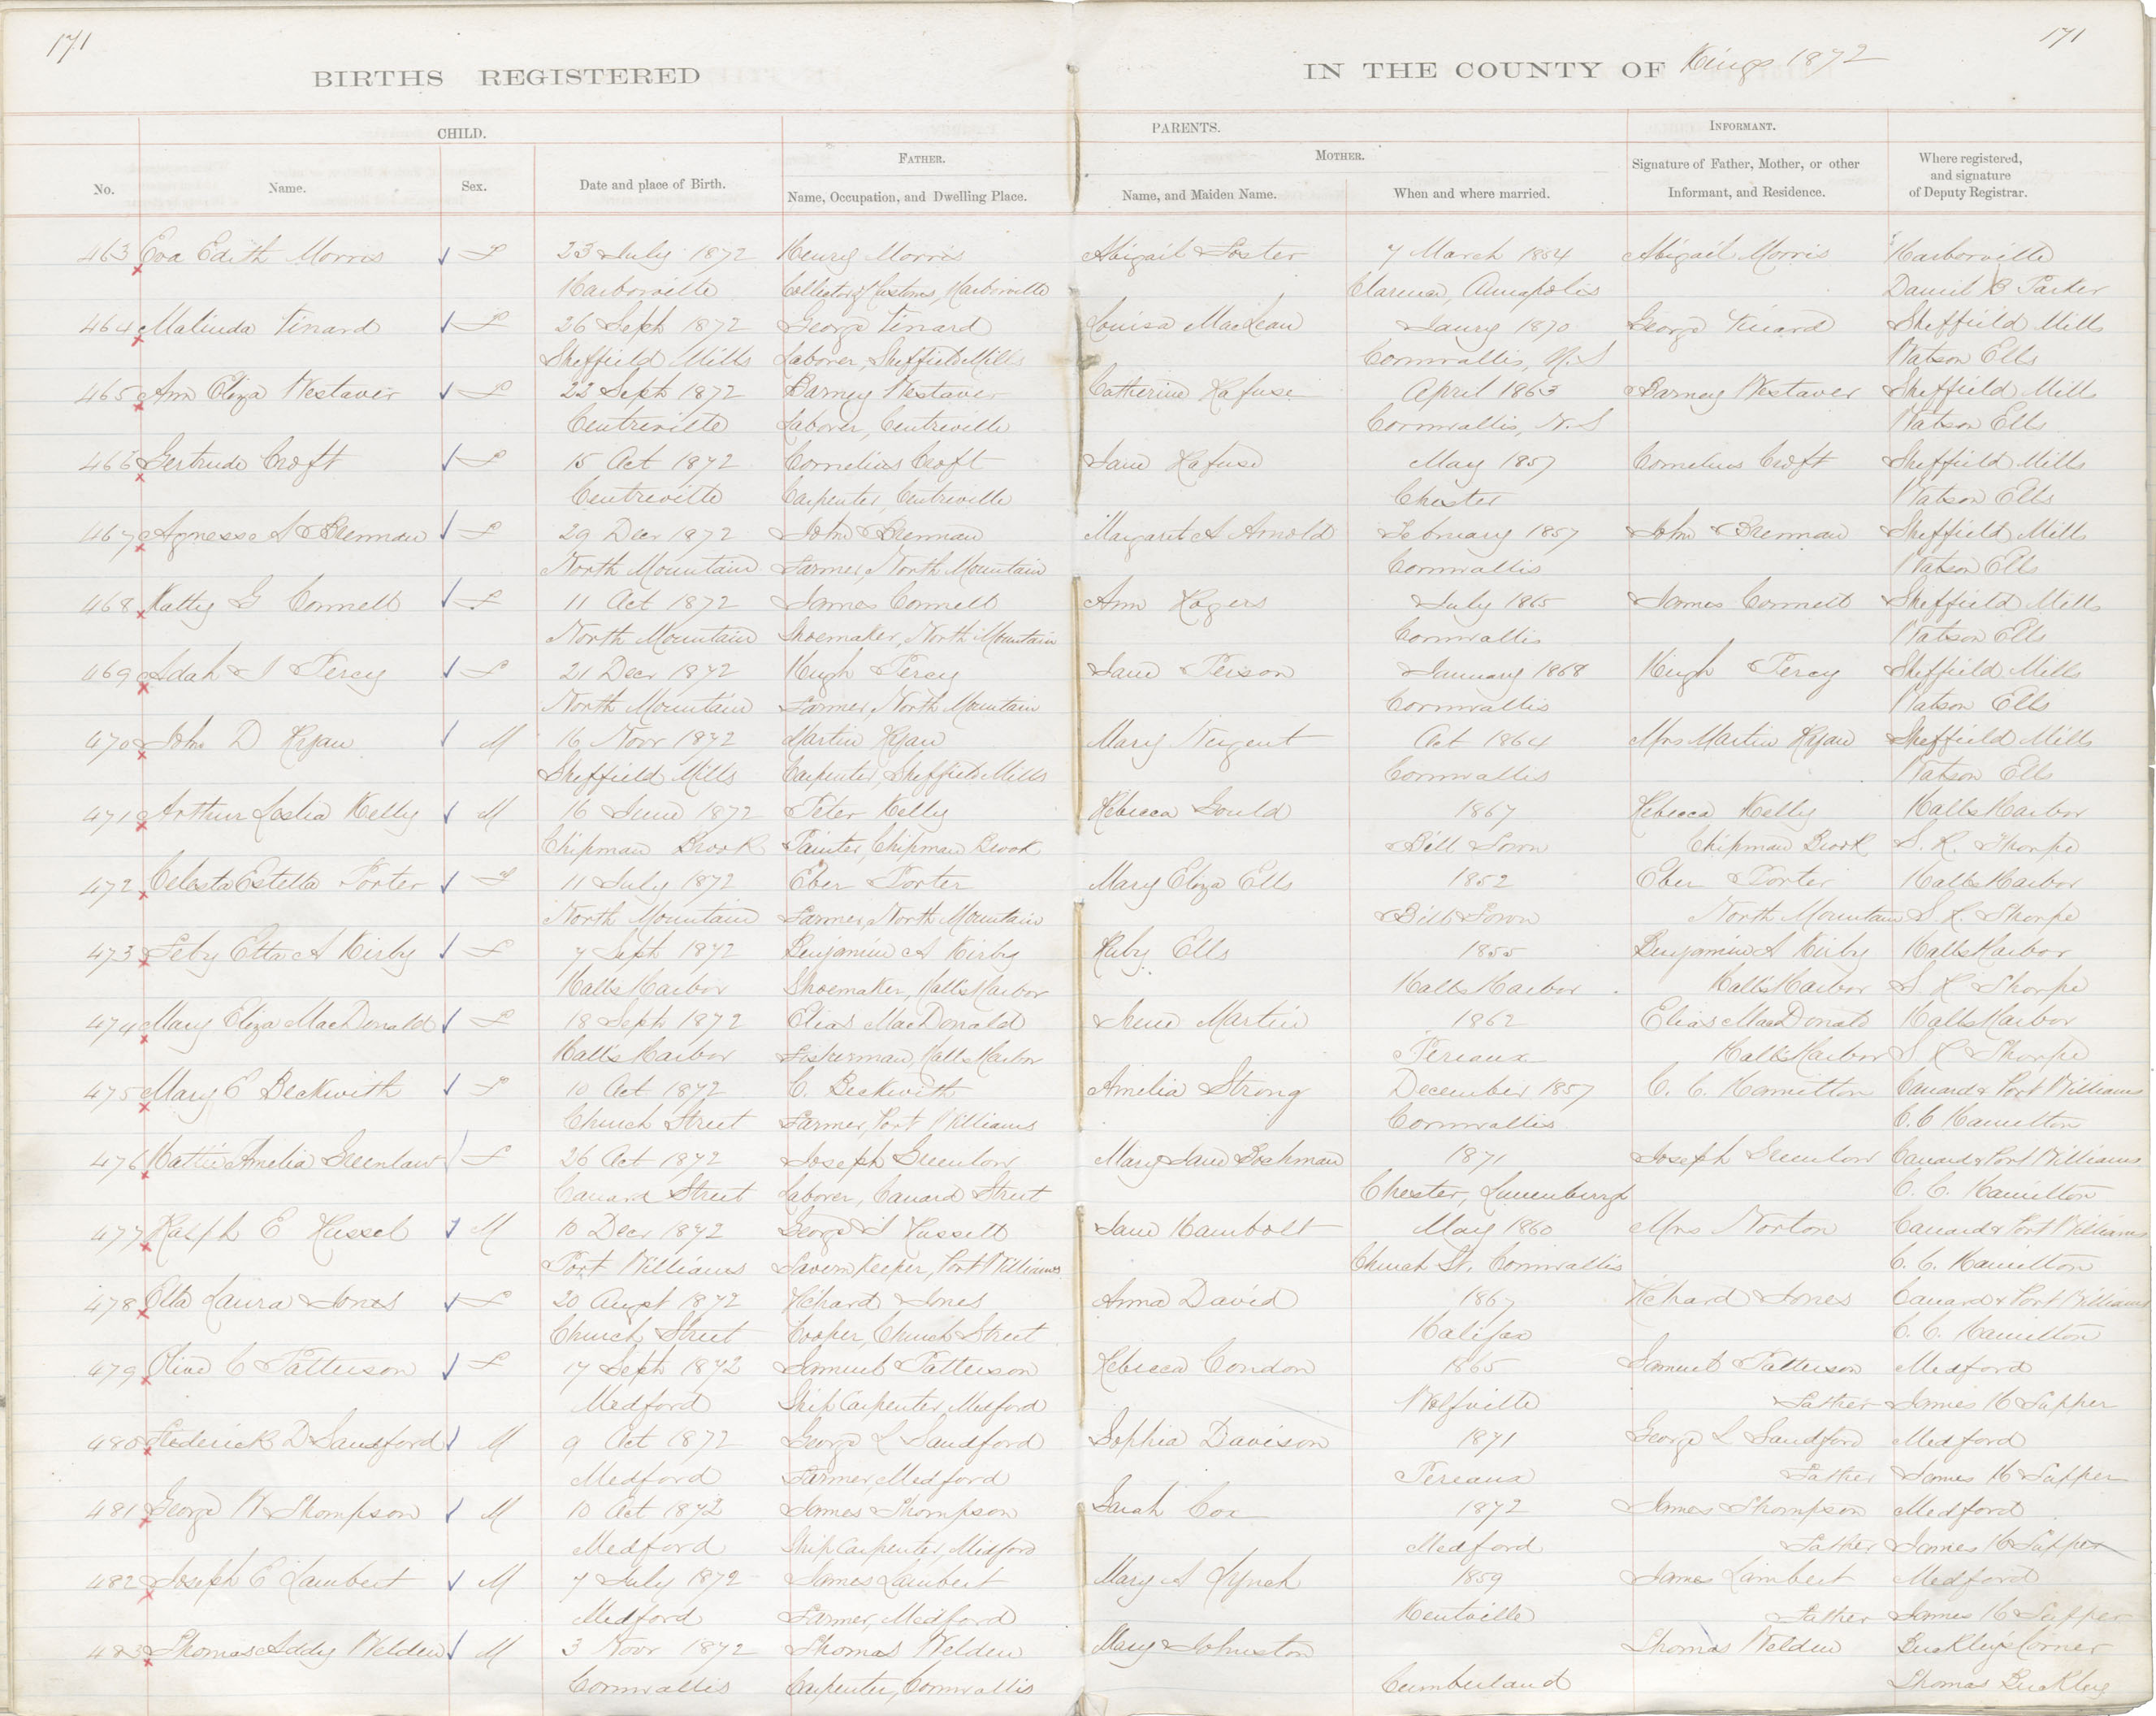 171
171
BIRTHS REGISTERED
IN THE COUNTY OF Kings 1872
CHILD.
PARENTS.
INFORMANT.
FATHER.
MOTHER.
No.
Name.
Sex.
Date and place of Birth.
Name, Occupation, and Dwelling Place.
Name, and Maiden Name.
When and where married.
Signature of Father, Mother, or other Informant, and Residence.
Where registered, and signature of Deputy Registrar.
463 Eva Edith Morris F 23 July 1872 Henry Morris Abigail Foster 7 March 1854 Abigail Morris Harborville
Harborville Collector of Customs, Harborville Clarence, Annapolis Daniel B Parker
464 Malinda Tinard F 26 Sept 1872 George Tinard Louisa MacLean Jany 1870 George Tinard Sheffield Mills
Sheffield Mills Laborer, Sheffield Mills Cornwallis, N.S Watson Ells
465 Ann Eliza Westaver F 22 Sept 1872 Barney Westaver Catherine Hafuse April 1863 Barney Westaver Sheffield Mills
Centreville Laborer, Centreville Cornwallis, N.S Watson Ells
466 Gertrude Croft F 15 Oct 1872 Cornelius Croft Jane Hafuse May 1857 Cornelius Croft Sheffield Mills
Centreville Carpenter, Centreville Chester Watson Ells
467 Agness A Brennan F 29 Decr 1872 John Brennan Margaret A Arnold February 1857 John Brennan Sheffield Mills
North Mountain Farmer, North Mountain Cornwallis Watson Ells
468 Katty G Connell F 11 Oct 1872 James Connell Ann Rogers July 1865 James Connell Sheffield Mills
North Mountain Shoemaker, North Mountain Cornwallis Watson Ells
469 Adah I Percy F 21 Decr 1872 Hugh Percy Jane January 1868 Hugh Percy Sheffield Mills
North Mountain Farmer, North Mountain Cornwallis Watson Ells
470 John D Ryan M 16 Novr 1872 Martin Ryan Mary Nugent Oct 1864 Mrs Martin Ryan Sheffield Mills
Sheffield Mills Carpenter, Sheffield Mills Cornwallis Watson Ells
471 Arthur Leslie Kelly M 16 June 1872 Peter Kelly Rebecca Gould 1867 Rebecca Kelly Halls Harbor
Chipman Brook Painter, Chipman Brook Bill Town Chipman Brook S. R. Thorpe
472 Celesta Estella Porter F 11 July 1872 Eber Porter Mary Eliza Ells 1852 Eber Porter Halls Harbor
North Mountain Farmer, North Mountain Bill Town North Mountain S. R. Thorpe
473 Etta A Kirby F 7 Sept 1872 Benjamin A Kirby Ruby Ells 1855 Benjamin A Kirby Halls Harbor
Halls Harbor Shoemaker, Halls Harbor Halls Harbor Halls Harbor S R Thorpe
474 Mary Eliza MacDonald F 18 Sept 1872 Elias MacDonald Martin 1862 Elias MacDonald Halls Harbor
Hall's Harbor Fisherman, Halls Harbor Pereaux Halls Harbor S R Thorpe
475 Mary E Beckwith F 10 Oct 1872 C. Beckwith Amelia Strong December 1857 C. C. Hamilton Canard & Port Williams
Church Street Farmer, Port Williams Cornwallis C. C Hamilton
476 Hattie Amelia Greenlaw F 26 Oct 1872 Joseph Greenlow Mary Jane Bockman 1871 Joseph Greenlow Canard & Port Williams
Canard Street Laborer, Canard Street Chester, Lunenburgh C. C. Hamilton
477 Ralph E Russel M 10 Decr 1872 George Russell Jane Hambolt May 1860 Mrs Norton Canard & Port Williams
Port Williams Tavern Keeper, Port Williams Church St. Cornwallis C. C. Hamilton
478 Etta Laura Jones F 20 Augst 1872 Richard Jones Anna David 1867 Richard Jones Canard & Port Williams
Church Street Cooper, Church Street Halifax C. C. Hamilton
479 Olive C Patterson F 17 Sept 1872 Samuel Patterson Rebecca Condon 1865 Samuel Patterson Medford
Medford Ship Carpenter, Medford Wolfville Father James H Tupper
480 Frederick D Sandford M 9 Oct 1872 George L Sandford Sophia Davison 1871 George L Sandford Medford
Medford Farmer, Medford Pereaux Father James H Tupper
481 George W Thompson M 10 Oct 1872 James Thompson Sarah Cox 1872 James Thompson Medford
Medford Ship Carpenter, Medford Medford Father James H Tupper
482 Joseph E Lambert M 7 July 1872 James Lambert Mary A Lynch 1859 James Lambert Medford
Medford Farmer, Medford Kentville Father James H Tupper
483 Thomas Addy Welden M 3 Novr 1872 Thomas Welden Mary Johnston Thomas Welden Buckley's Corner
Cornwallis Carpenter, Cornwallis Cumberland Thomas Buckley